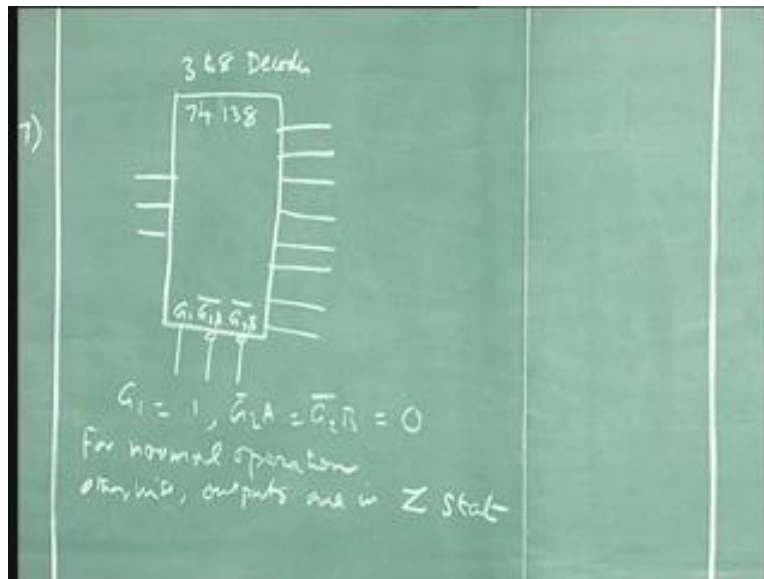 3 to 8 Decoder
74 138
7)
G1 G2A G2B
G1 = 1, G̅2A = G̅2B = 0
For normal operation
otherwise, outputs are in Z state